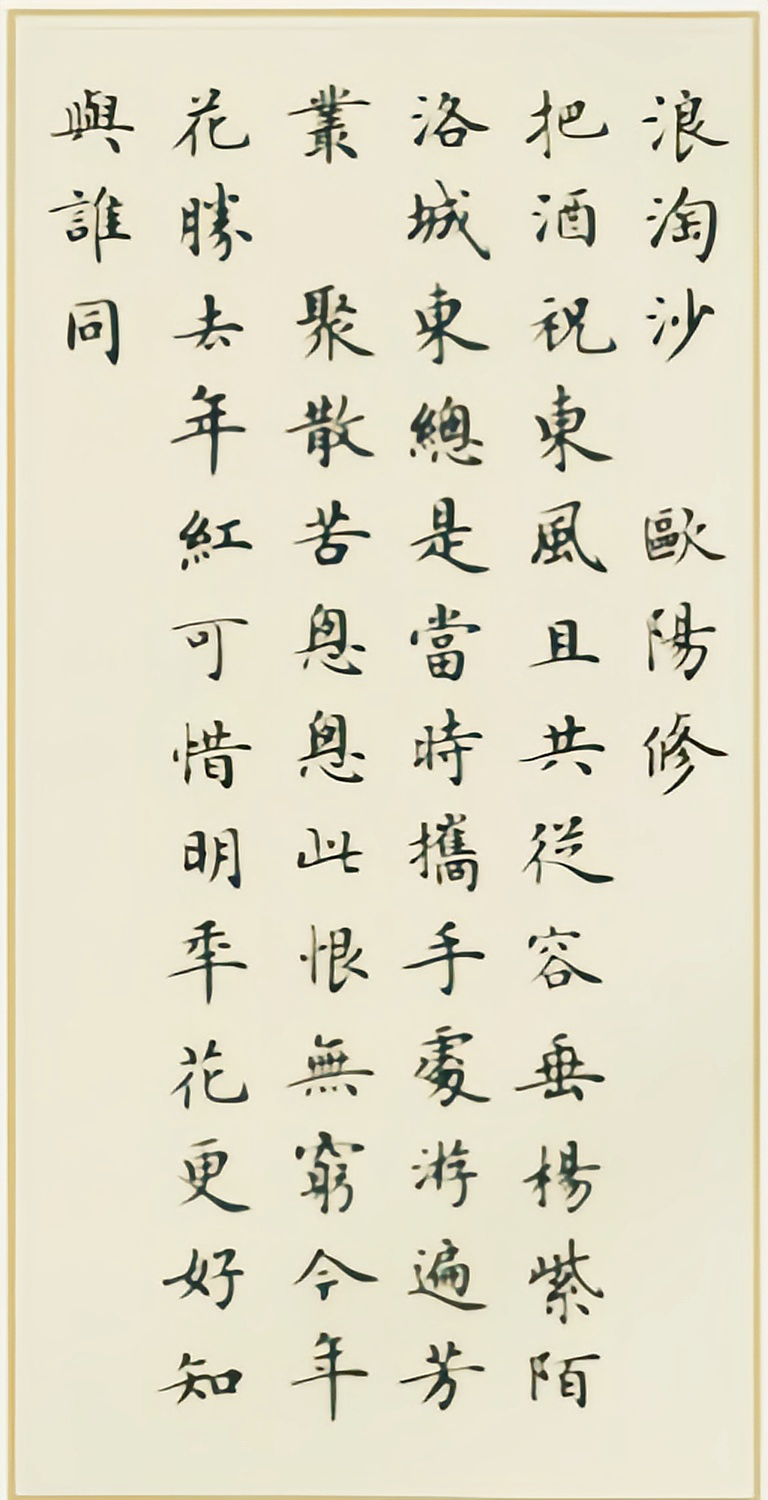 浪淘沙 歐陽修
把酒祝東風且共從容垂楊紫陌
洛城東總是當時攜手處游遍芳
叢 聚散苦怱怱此恨無窮今年
花勝去年紅可惜明年花更好知
與誰同